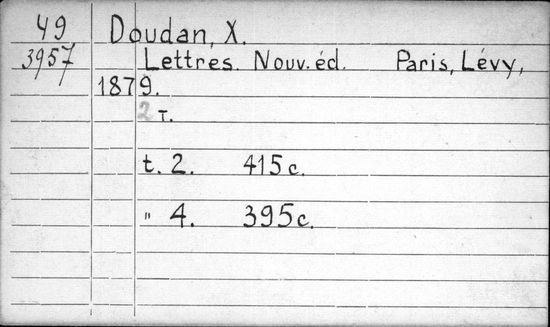 49 Doudan, X.
3957 Lettres. Nouv. éd. Paris, Lévy,
1879.
2 т.
t. 2. 415 c.
" 4. 395 c.